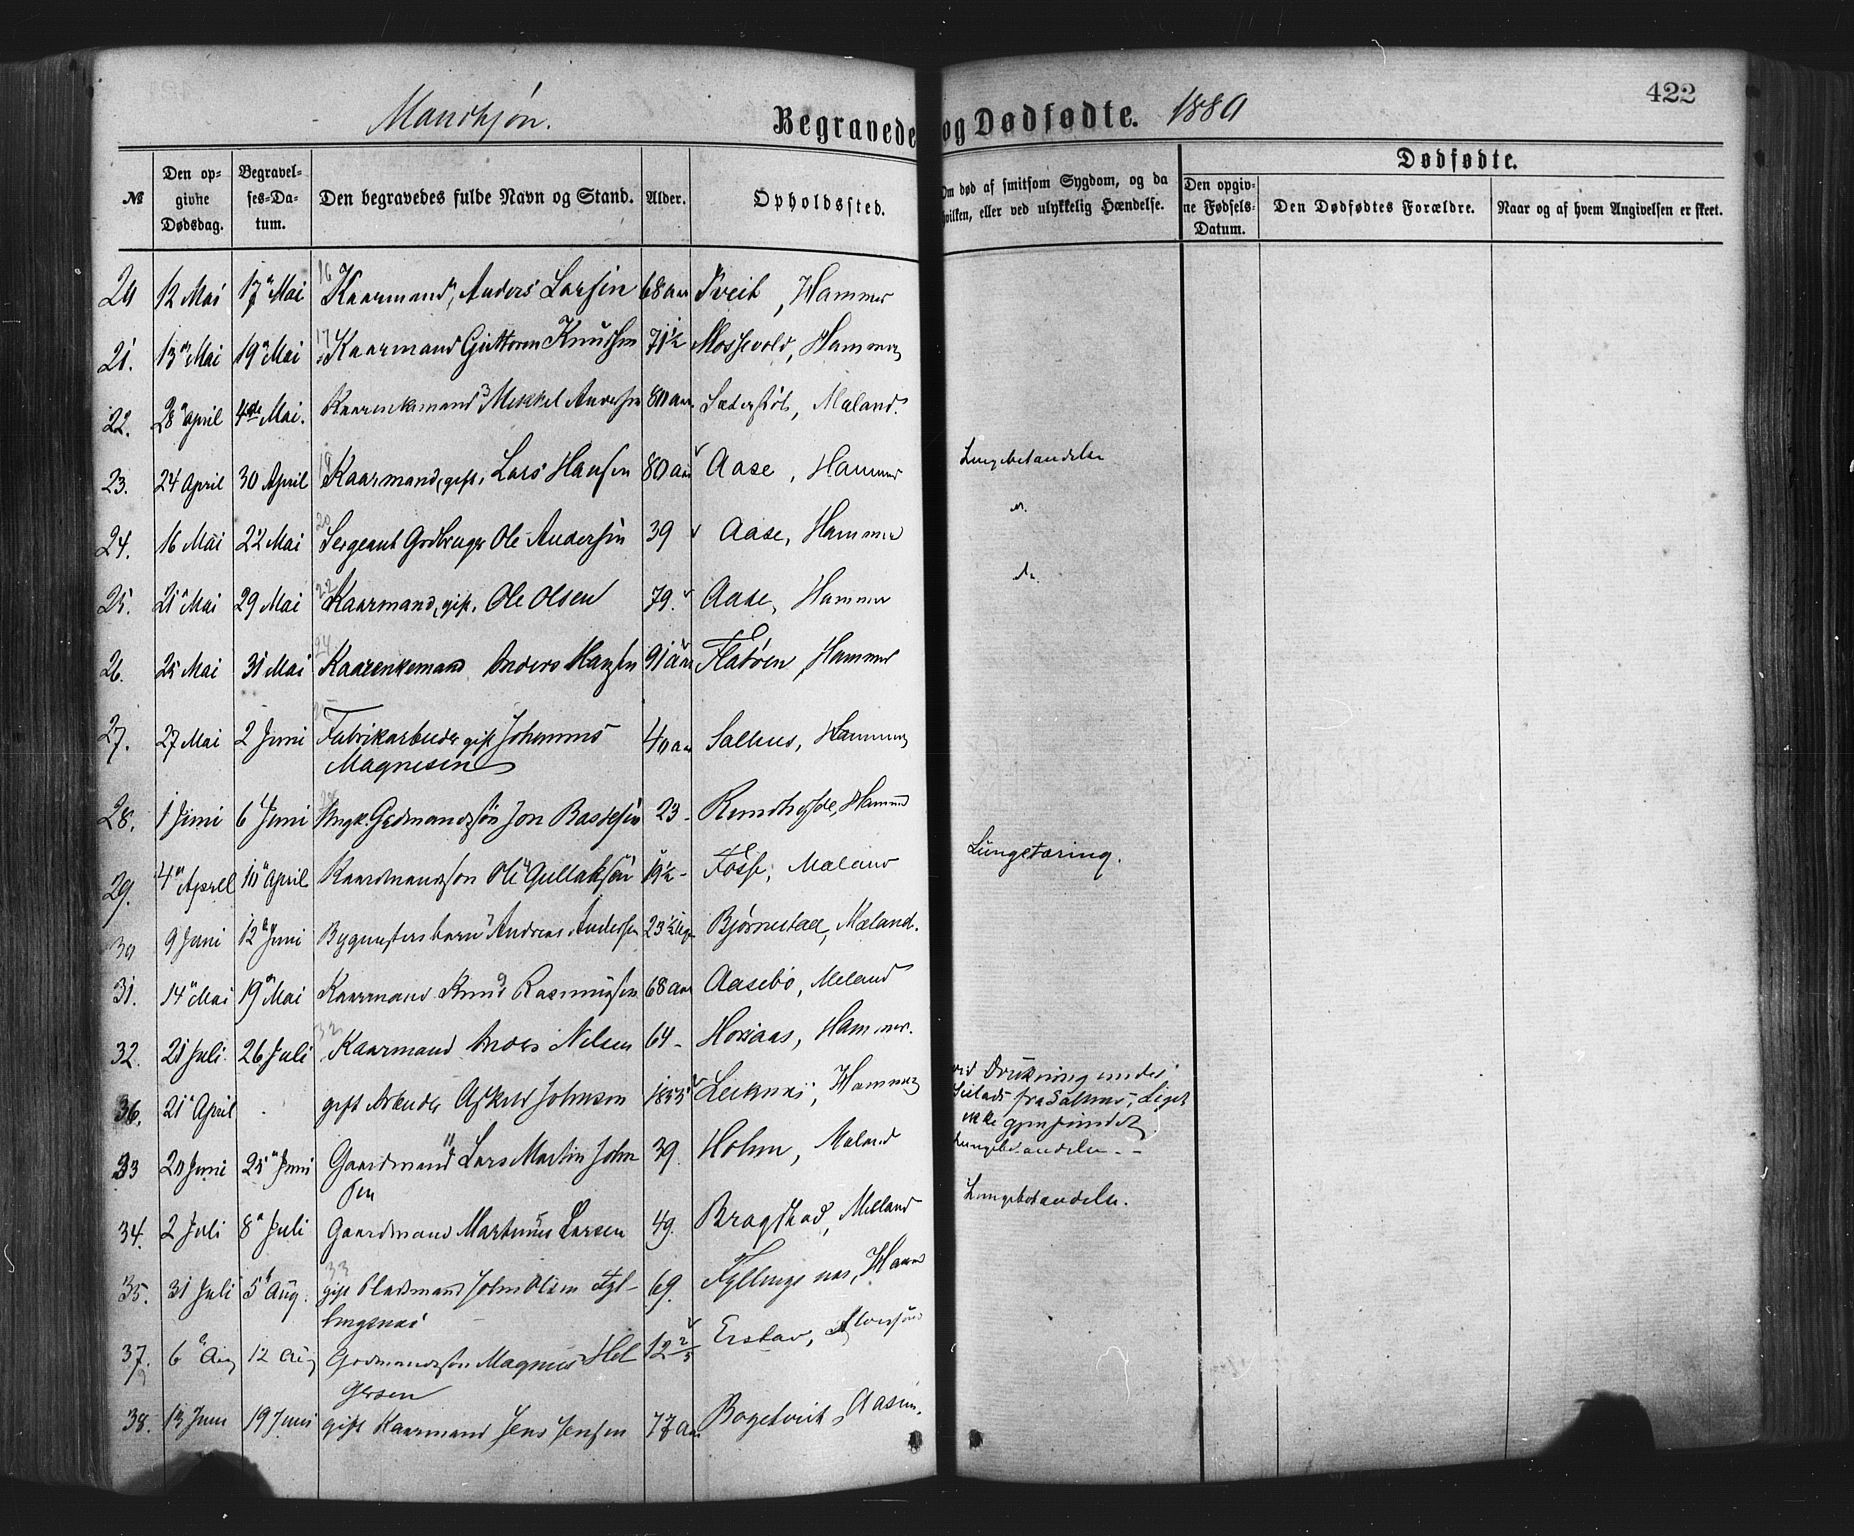 422
Mandkjøn. Begravede og Dødfødte. 1880
Dødfødte.
№ Den opgivne Dødsdag. Begravelses-Datum. Den begravedes fulde Navn og Stand. Alder. Opholdssted. Om død af smitsom Sygdom, og da hvilken, eller ved ulykkelig Hændelse. Den opgivne Fødsels-Datum. Den Dødfødtes Forældre. Naar og af hvem Angivelsen er skeet.
20 12 Mai 17 Mai 16 Kaarmand, Anders Larsen 68 aar Tveit, Hammer
21. 13 Mai 19 Mai 17 Kaarmand Guttorm Knudsen 71 1/2 Mossevold, Hammer
22. 28 April 4de Mai. Kaarenkemand Mikkel Andersen 80 aar Sæterstøl, Mæland.
23. 24 April 30 April Kaarmand, gift, Lars Hansen 80 aar Aase, Hammer
24. 16 Mai 22 Mai 20 Sergeant Grdbruger Ole Andersen 39 Aase, Hammer
25. 21 Mai 29 Mai 22 Kaarmand, gift, Ole Olsen 79. Aase, Hammer
26. 25 Mai 31 Mai 24 Kaarenkemand Anders Hansen 91 aar Flatøen, Hammer
27. 27 Mai 2 Juni Fabrikarbeider gift Johannes 40 aar Salhus, Hammer
Magnesen
28. 1 Juni 6 Juni Ungk. Grdmandssøn Jon Bastesen 23 - Hammer
29. 4 April 10 April Kaardmandssøn Ole Gullaksen Fosse, Mæland Lungetæring.
30 9 Juni 12 Juni Bygmesters barn Andreas Andersen 23 1/2 Bjørnestad, Mæland.
31. 14 Mai 19 Mai Kaarmand Knud Rasmussen 68 aar Aasebø, Meland
32. 21 Juli. 26 Juli 32 Kaarmand Anders Nilsen 64 - Horsaas, Hammer.
36. 21 April gift Arbeider Johnsen 1835 Leiknes, Hammer ved Drukning under
Seilads fra Salhus, Liget
ikke gjenfundet
33 20 Juni 25 Juni Gaardmand Lars Martin John 39. Holm, Mæland
sen
34. 2 Juli 8 Juli Gaardmand Martinus Larsen 49. Bragstad, Mæland
35. 31 Juli 5 Aug. 33 gift Pladsmand John Olsen Fyl- 69. Fyllingsnæs, Hammer
lingsnæs
37. 6 Aug 12 Aug Grdmandssøn Magnus Hel 12 2/3 Erstad, Alversund
gesen
38. 13 Juni 19 Juni gift Kaarmand Jens Jensen 77 Aar Bogetveit,